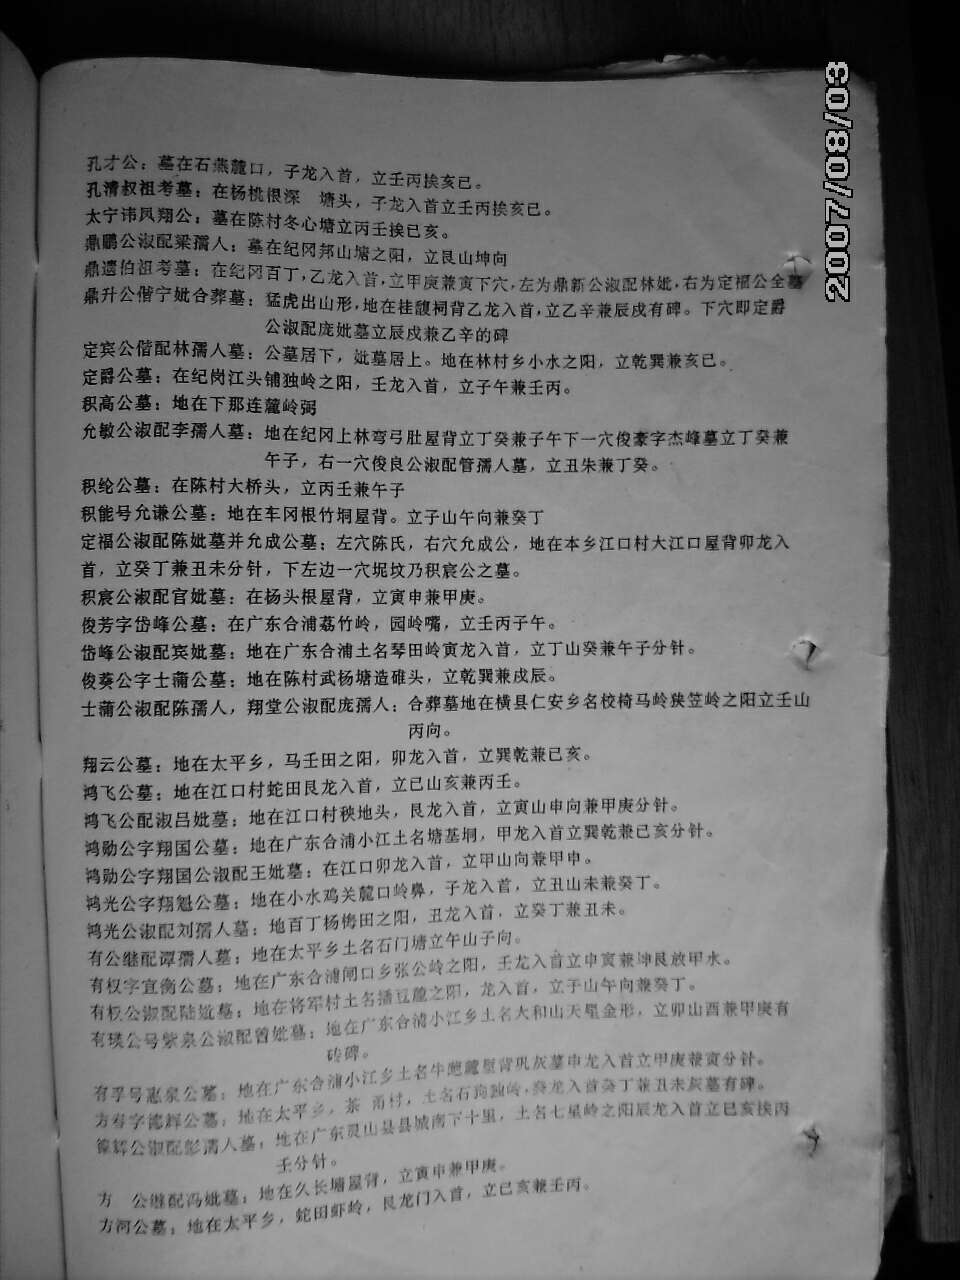 2007/08/03
孔才公：墓在石燕麓口，子龙入首，立壬丙挨亥巳。
孔清叔祖考墓：在杨桃根深　塘头，子龙入首立壬丙挨亥巳。
太宁讳凤翔公：墓在陈村冬心塘立丙壬挨巳亥。
鼎鹏公淑配梁孺人：墓在纪冈邦山塘之阳，立艮山坤向
鼎遗伯祖考墓：在纪冈百丁，乙龙入首，立甲庚兼寅下穴，左为鼎新公淑配林妣，右为定福公全墓
鼎升公偕宁妣合葬墓：猛虎出山形，地在桂馥祠背乙龙入首，立乙辛兼辰戍有碑。下穴即定爵
公淑配庞妣墓立辰戍兼乙辛的碑
定宾公偕配林孺人墓：公墓居下，妣墓居上。地在林村乡小水之阳，立乾巽兼亥已。
定爵公墓：在纪岗江头铺独岭之阳，壬龙入首，立子午兼壬丙。
积高公墓：地在下那连麓岭弼
允敏公淑配李孺人墓：地在纪冈上林弯弓肚屋背立丁癸兼子午下一穴俊豪字杰峰墓立丁癸兼
午子，右一穴俊良公淑配管孺人墓，立丑朱兼丁癸。
积纶公墓：在陈村大桥头，立丙壬兼午子
积能号允谦公墓：地在车冈根竹垌屋背。立子山午向兼癸丁
定福公淑配陈妣墓并允成公墓：左穴陈氏，右穴允成公，地在本乡江口村大江口屋背卯龙入
首，立癸丁兼丑未分针，下左边一穴坭坟乃积宸公之墓。
积宸公淑配官妣墓：在杨头根屋背，立寅申兼甲庚。
俊芳字岱峰公墓：在广东合浦荔竹岭，园岭嘴，立壬丙子午。
岱峰公淑配宾妣墓：地在广东合浦土名琴田岭寅龙入首，立丁山癸兼午子分针。
俊葵公字士蒲公墓：地在陈村武杨塘造碓头，立乾巽兼戍辰。
士蒲公淑配陈孺人，翔堂公淑配庞孺人：合葬墓地在横县仁安乡名校椅马岭狭笠岭之阳立壬山
丙向。
翔云公墓：地在太平乡，马壬田之阳，卯龙入首，立巽乾兼已亥。
鸿飞公墓：地在江口村蛇田艮龙入首，立已山亥兼丙壬。
鸿飞公配淑吕妣墓：地在江口村秧地头，艮龙入首，立寅山申向兼甲庚分针。
鸿勋公字翔国公墓：地在广东合浦小江土名塘基垌，甲龙入首立巽乾兼已亥分针。
鸿勋公字翔国公淑配王妣墓：在江口卯龙入首，立甲山向兼甲申。
鸿光公字翔魁公墓：地在小水鸡关麓口岭鼻，子龙入首，立丑山未兼癸丁。
鸿光公淑配刘孺人墓：地百丁杨梅田之阳，丑龙入首，立癸丁兼丑未。
有公继配谭孺人墓：地在太平乡土名石门塘立午山子向。
有权字宜衡公墓：地在广东合浦闸口乡张公岭之阳，壬龙入首立申寅兼坤艮放甲水。
有权公淑配陆妣墓：地在将军村土名播豆麓之阳，龙入首，立子山午向兼癸丁。
有瑛公号紫泉公淑配曾妣墓：地在广东合浦小江乡土名大和山天星金形，立卯山酉兼甲庚有
砖碑。
有孚号惠泉公墓：地在广东合浦小江乡土名牛麓屋背巩灰墓申龙入首立甲庚兼寅分针。
方 字德辉公墓：地在太平乡，茶 甬村，土名石狗独岭，癸龙入首癸丁兼丑未灰墓有碑。
锦辉公淑配彭孺人墓：地在广东灵山县县城南下十里，土名七星岭之阳辰龙入首立已亥挨丙
壬分针。
方　公继配冯妣墓：地在久长塘屋背，立寅申兼甲庚。
方河公墓：地在太平乡，蛇田虾岭，艮龙门入首，立已亥兼壬丙。